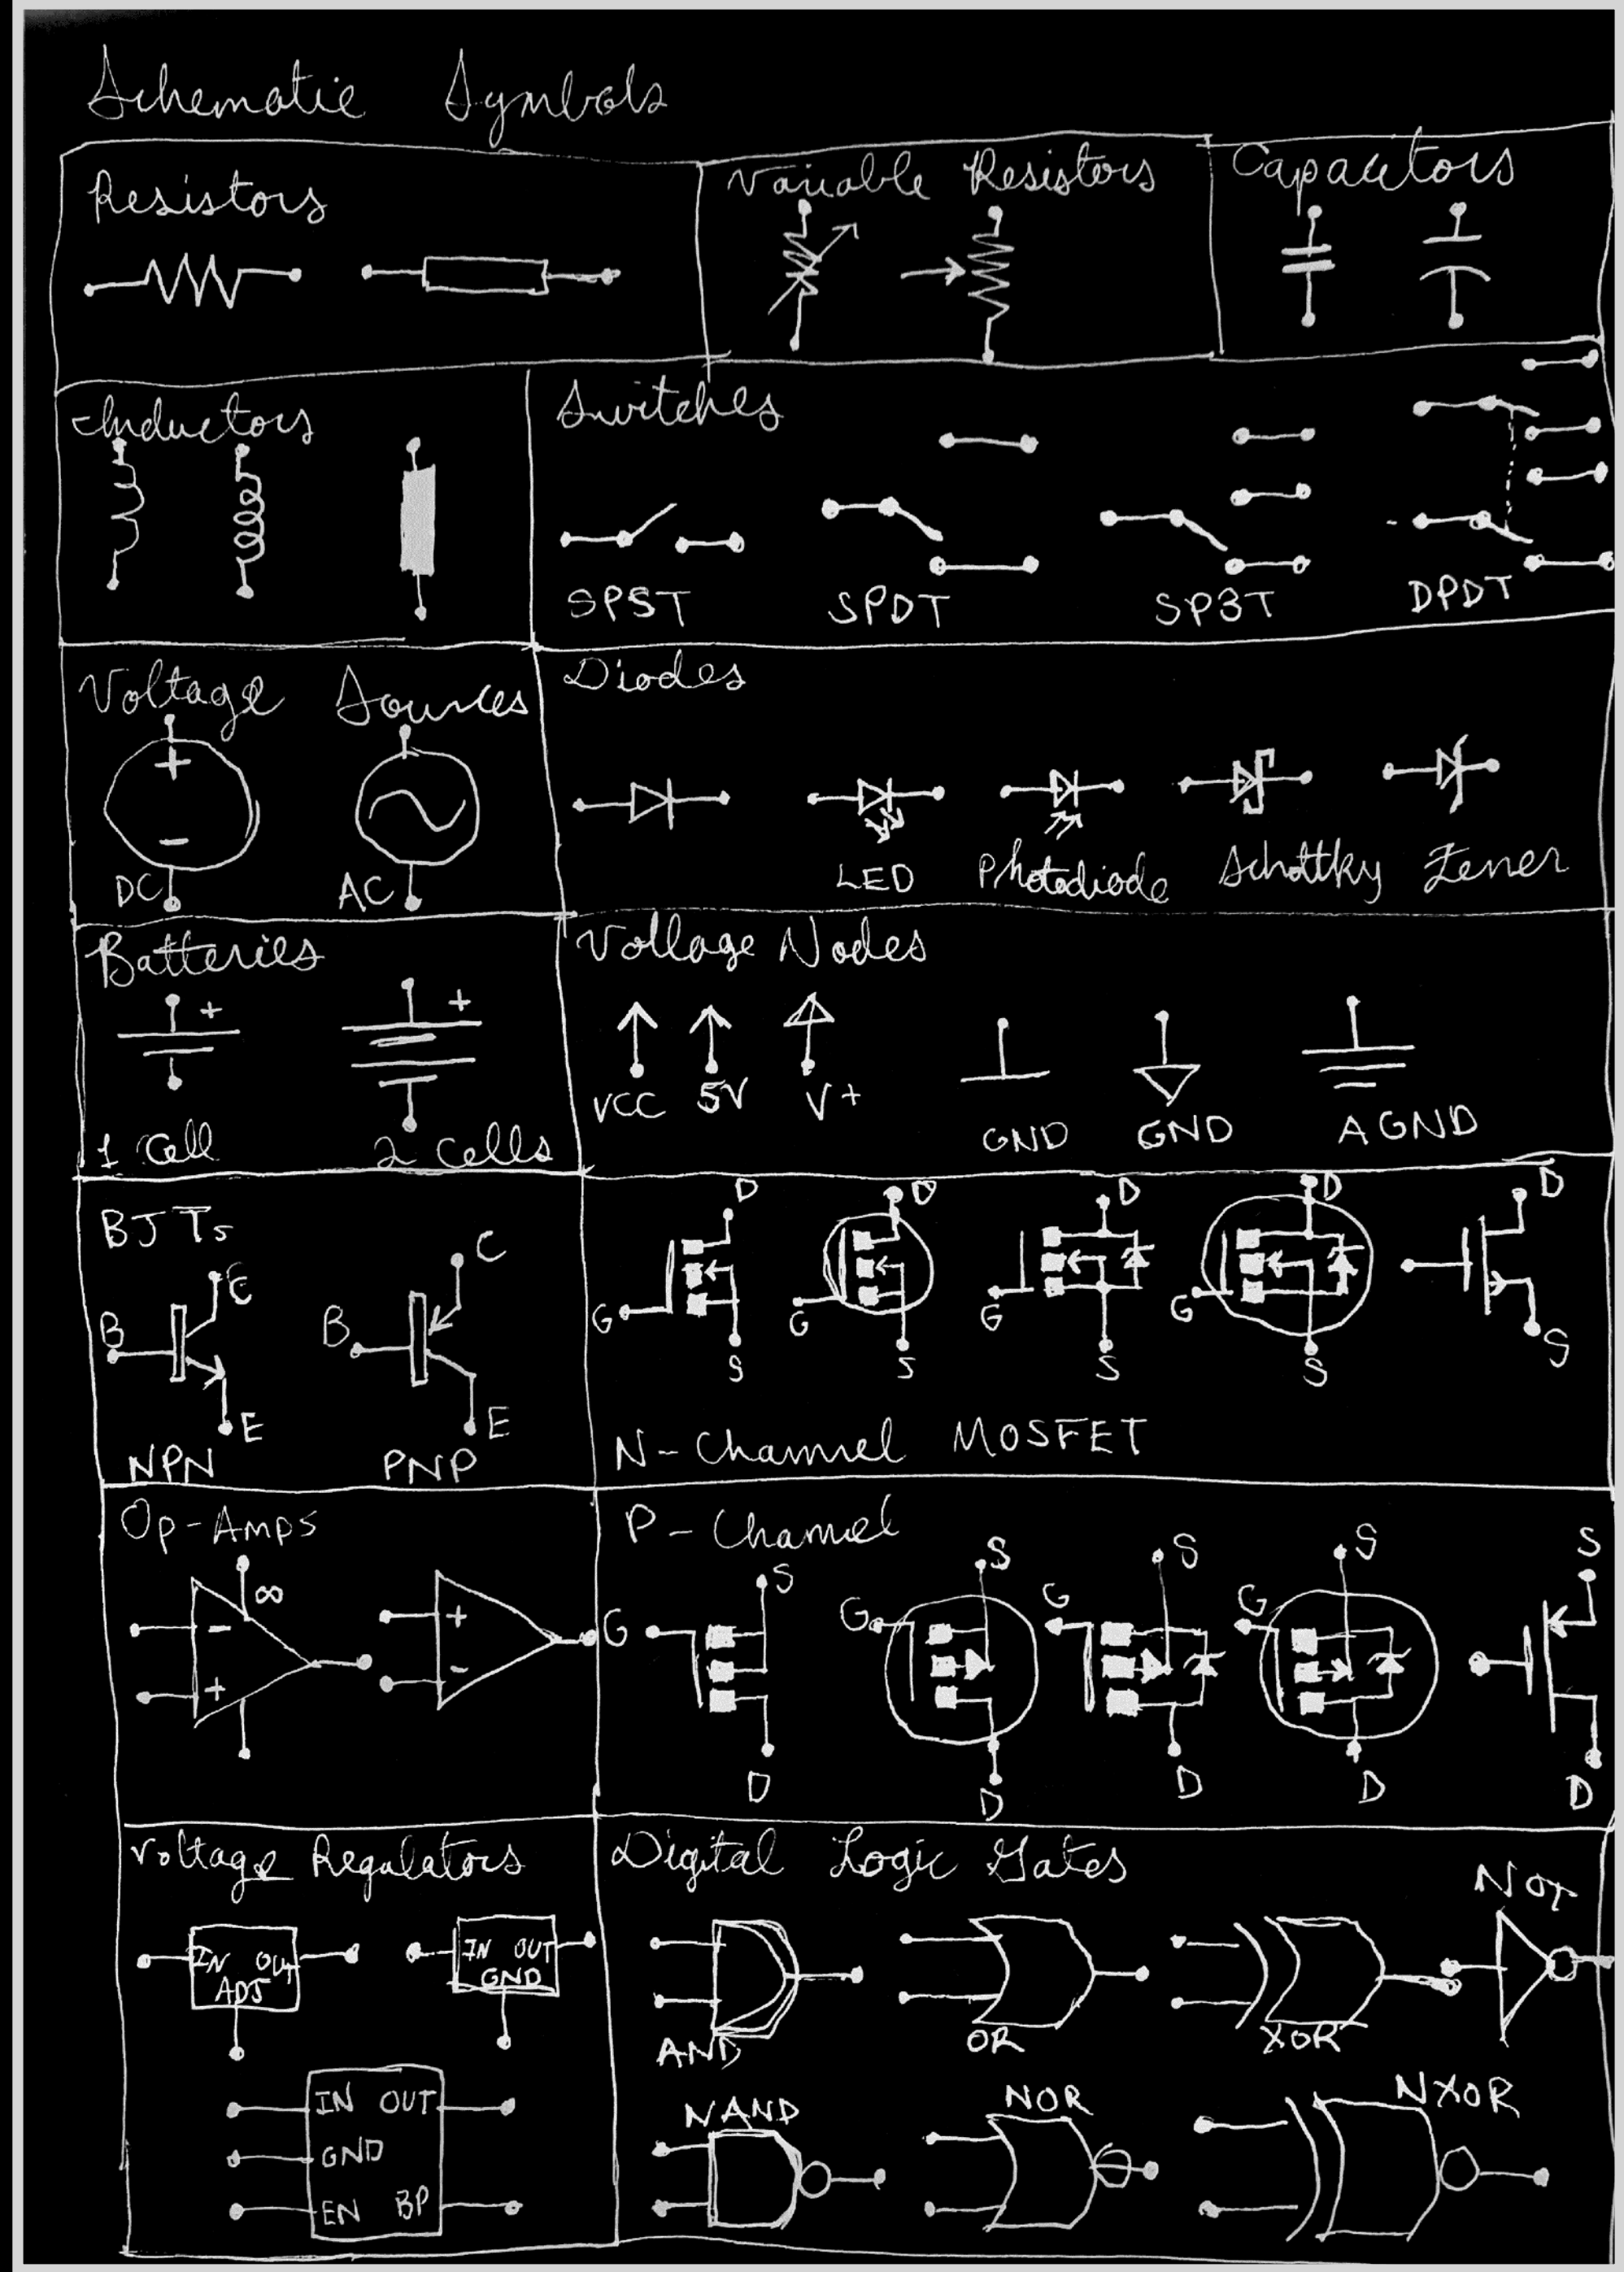 Schematic Symbols
Resistors
Variable Resistors
Capacitors
Inductors
Switches
SPST
SPDT
SP3T
DPDT
Voltage Sources
+
-
DC
AC
Diodes
LED
Photodiode
Schottky
Zener
Batteries
+
+
1 Cell
2 Cells
Voltage Nodes
VCC
5V
V+
GND
GND
AGND
BJTs
B
C
E
NPN
B
C
E
PNP
D
G
S
D
G
S
D
G
S
D
G
S
D
S
N-Channel MOSFET
Op-Amps
∞
-
+
+
-
P-Channel
S
G
D
S
G
D
S
G
D
S
G
D
S
D
Voltage Regulators
IN OUT
ADJ
IN OUT
GND
IN OUT
GND
EN BP
Digital Logic Gates
AND
OR
XOR
NOT
NAND
NOR
NXOR